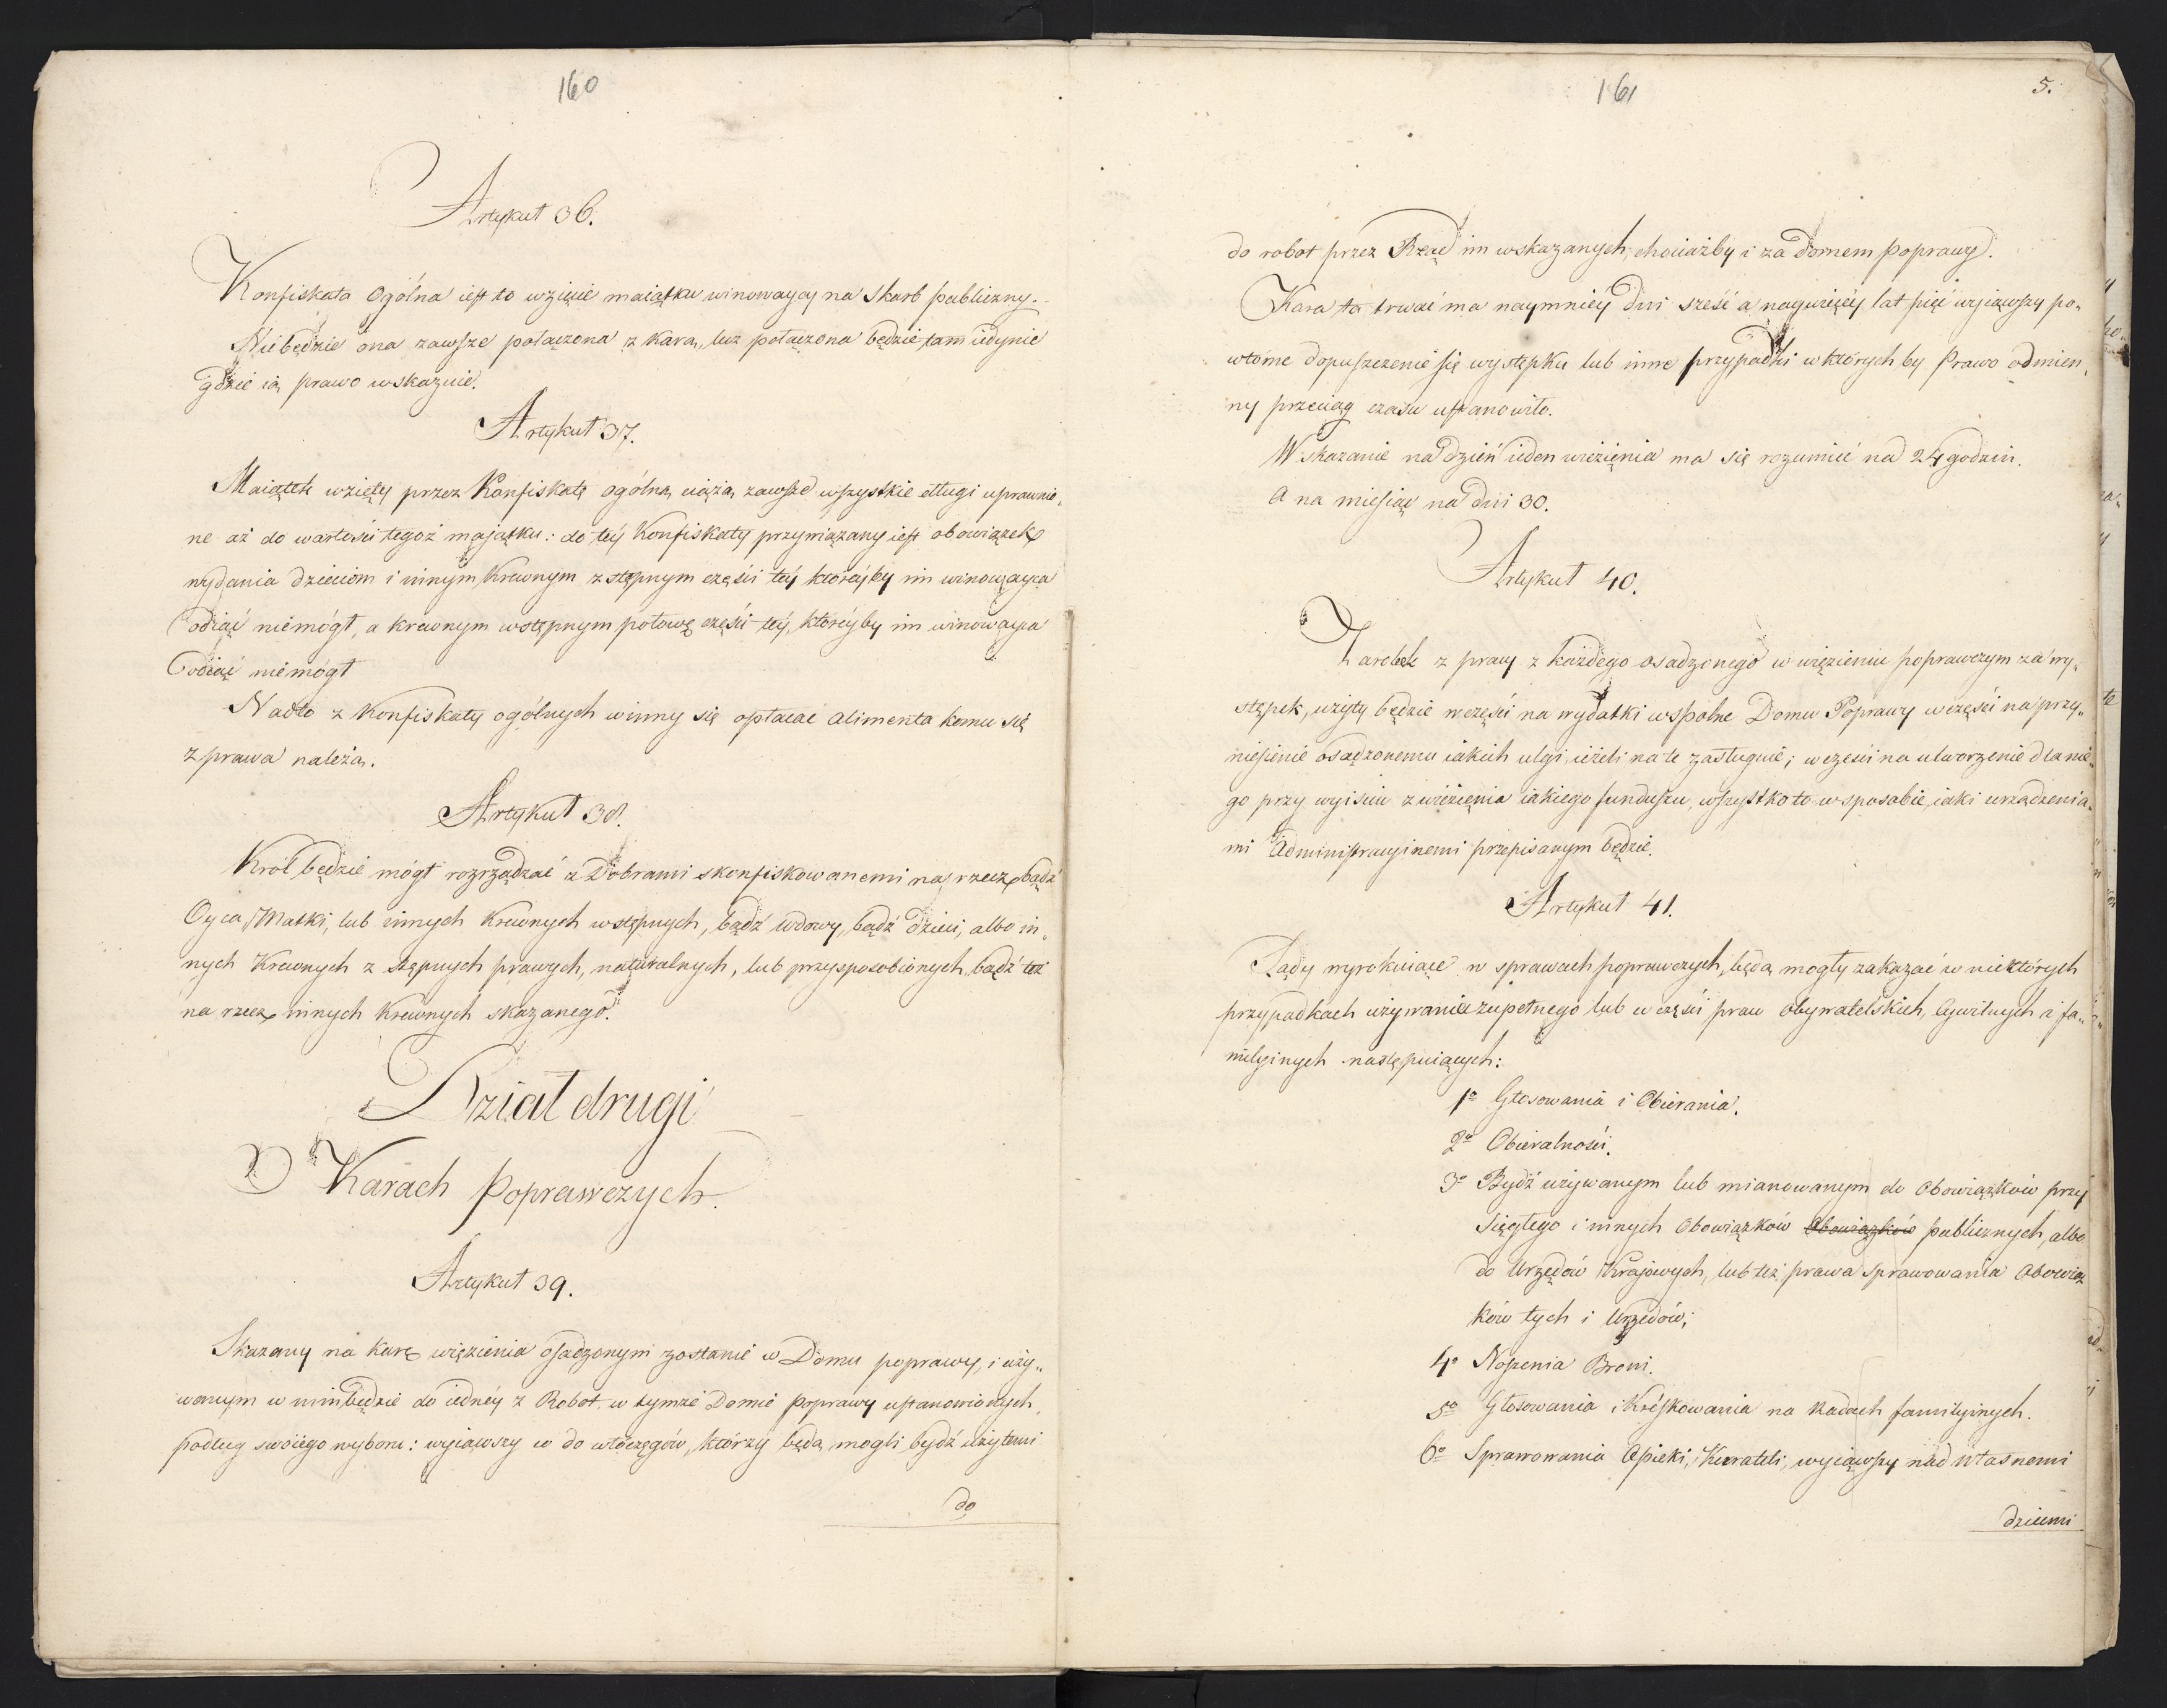 160
Artykuł 36.
Konfiskata Ogólna iest to wzięcie maiątku winowaycy na Skarb publiczny.
Niebędzie ona zawsze połączona z karą, lecz połączona będzie tam iedynie
gdzie ią prawo wskazuie.
Artykuł 37.
Maiątek wzięty przez Konfiskatę ogólną ciążą zawsze wszystkie długi uprawnio„
ne aż do wartości tegoż majątku: do téy Konfiskaty przywiązany iest obowiązek
wydania dzieciom i innym Krewnym zstępnym części téy któréyby im winowayca
odiąć niemógł, a krewnym wstępnym połowę części téy, któréyby im winowayca
odiąć niemógł
Nadto z Konfiskaty ogólnych winny się opłacać alimenta komu się
z prawa należą.
Artykuł 38.
Król będzie mógł rozrządzać z Dobrami skonfiskowanemi na rzecz bądź
Oyca, Matki, lub innych Krewnych wstępnych, bądź wdowy, bądź dzieci, albo in„
nych Krewnych z stępnych prawych, naturalnych, lub przysposobionych, bądź też
na rzecz innych Krewnych skazanego.
Dział drugi
O Karach Poprawczych.
Artykuł 39.
Skazany na karę więzienia osadzonym zostanie w Domu poprawy, i uży„
wanym w nim będzie do iednéy z Robot w tymże Domie poprawy ustanowionych,
podług swoiego wyboru: wyiąwszy w do włóczęgów, którzy będą mogli bydź użytemi
do
161
5.
do robot przez Rząd im wskazanych, chociażby i za domem poprawy.
Kara ta trwać ma naymniéy dni sześć a naywięcéy lat pięć wyiąwszy po„
wtorne dopuszczenie się występku lub inne przypadki w których by Prawo odmien„
ny przeciąg czasu ustanowiło.
Wskazanie na dzień ieden więzienia ma się rozumieć na 24 godzin.
a na miesiąc na dni 30.
Artykuł 40.
Zarobek z pracy z każdego osadzonego w więzieniu poprawczym za wy„
stępek, użyty będzie wczęści na wydatki wspólne Domu Poprawy wczęści na przy„
niesienie osadzonemu iakich ulgi, ieżeli na te zasługuie; wczęści na utworzenie dla nie„
go przy wyiściu z więzienia iakiego funduszu, wszystko to w sposobie, iaki urządzenia„
mi Administracyinemi przepisanym będzie.
Artykuł 41.
Sądy wyrokuiące w sprawach poprawczych, będą mogły zakazać w niektórych
przypadkach używania zupełnego lub w części praw Obywatelskich, Cywilnych i fa„
milyinych następuiących:
1º Głosowania i Obierania.
2º Obieralności.
3º Bydź używanym lub mianowanym do Obowiązków przy
sięgłego i innych Obowiązków Obowiązków publicznych, albo
do Urzędów Krajowych, lub też prawa sprawowania Obowiąz
ków tych i Urzędów;
4º Noszenia Broni.
5º Głosowania i Kréskowania na Radach familyinych.
6º Sprawowania Opieki, Kurateli, wyiąwszy nad własnemi
dziećmi